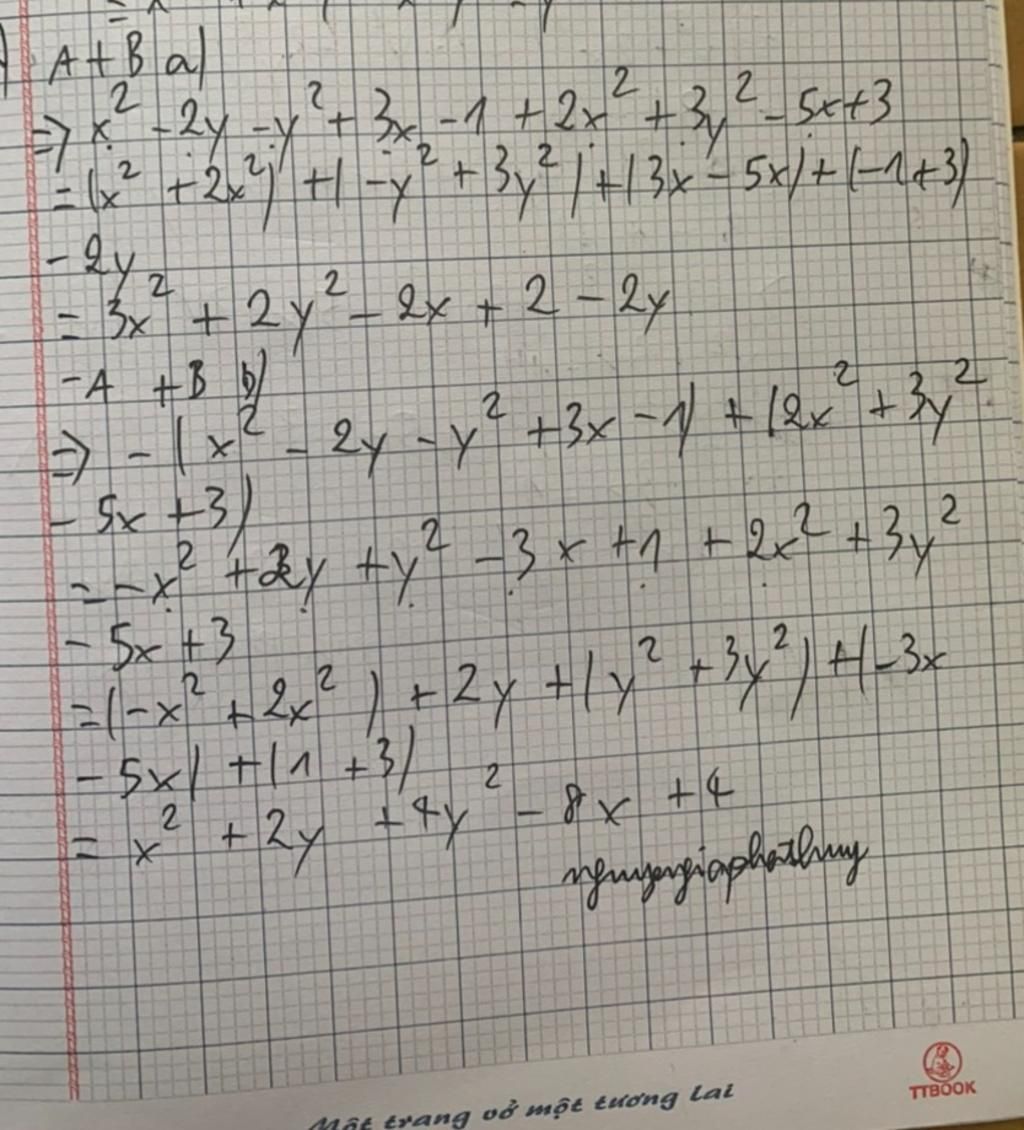 A + B a)
=> x² - 2y - y² + 3x - 1 + 2x² + 3y² - 5x + 3
= (x² + 2x²) + (-y² + 3y²) + (3x - 5x) + (-1 + 3)
- 2y
= 3x² + 2y² - 2x + 2 - 2y
- A + B b)
=> - (x² - 2y - y² + 3x - 1) + (2x² + 3y²
- 5x + 3)
= - x² + 2y + y² - 3x + 1 + 2x² + 3y²
- 5x + 3
= (-x² + 2x²) + 2y + (y² + 3y²) + (-3x
- 5x) + (1 + 3)
= x² + 2y + 4y² - 8x + 4
nguyengiaphathuy
Một trang vở một tương lai
TTBOOK